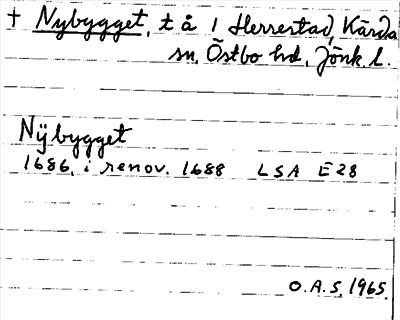 † Nybygget, t å 1 Herrestad, Kärda
sn, Östbo hd, Jönk l.
Nÿbygget
1686, i renov. 1688 LSA E 28
O.A.S. 1965.